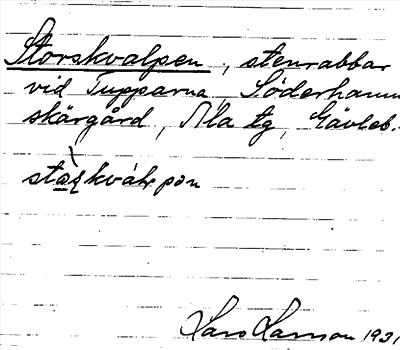 Storskvalpen, stenrabbar
vid Tupparna, Söderhamn
skärgård, Ala tg, Gävleb.
Lars Larsson 1931